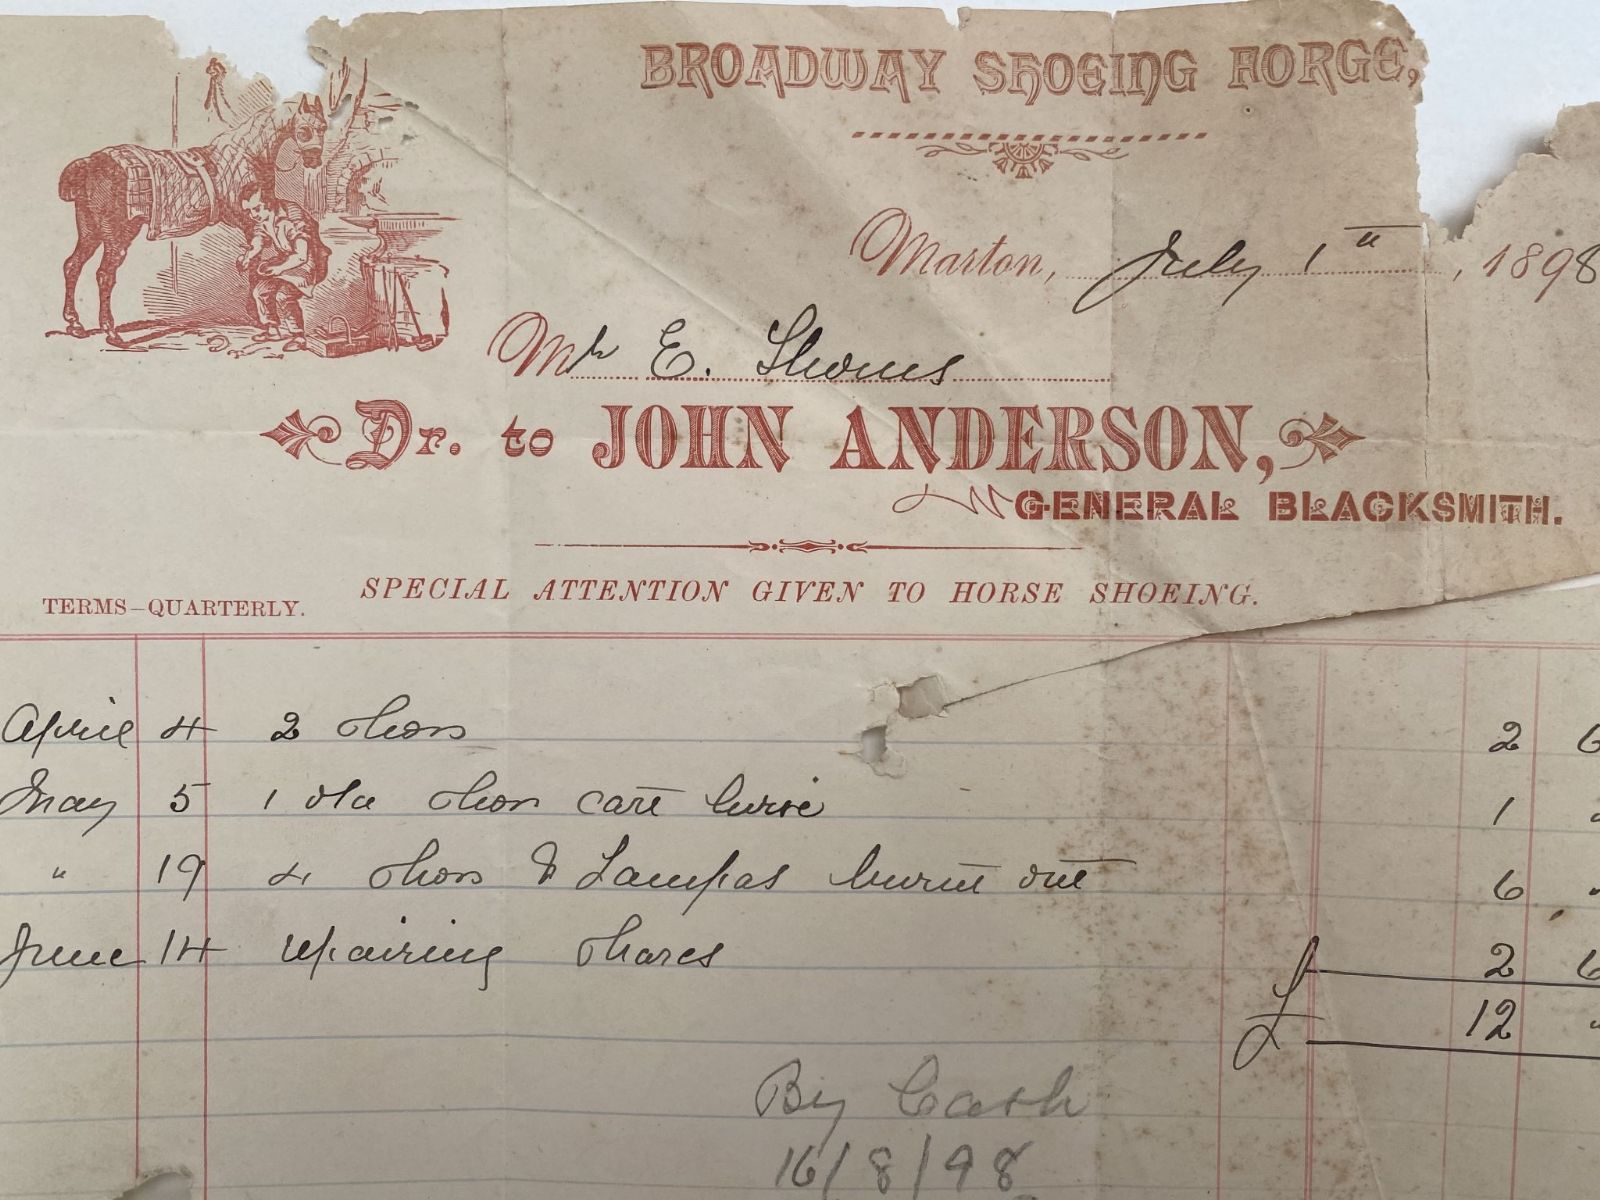 BROADWAY SHOEING FORGE,
Marton, July 1st, 1898
Mr E. Thoms
Dr. to JOHN ANDERSON,
GENERAL BLACKSMITH.
SPECIAL ATTENTION GIVEN TO HORSE SHOEING.
TERMS–QUARTERLY.
April 4 2 shoes 2 6
May 5 1 old shoe cart horse 1 "
" 19 4 shoes & Lampas burnt out 6 "
June 14 repairing shares 2 6
£ 12 "
By Cash
16/8/98